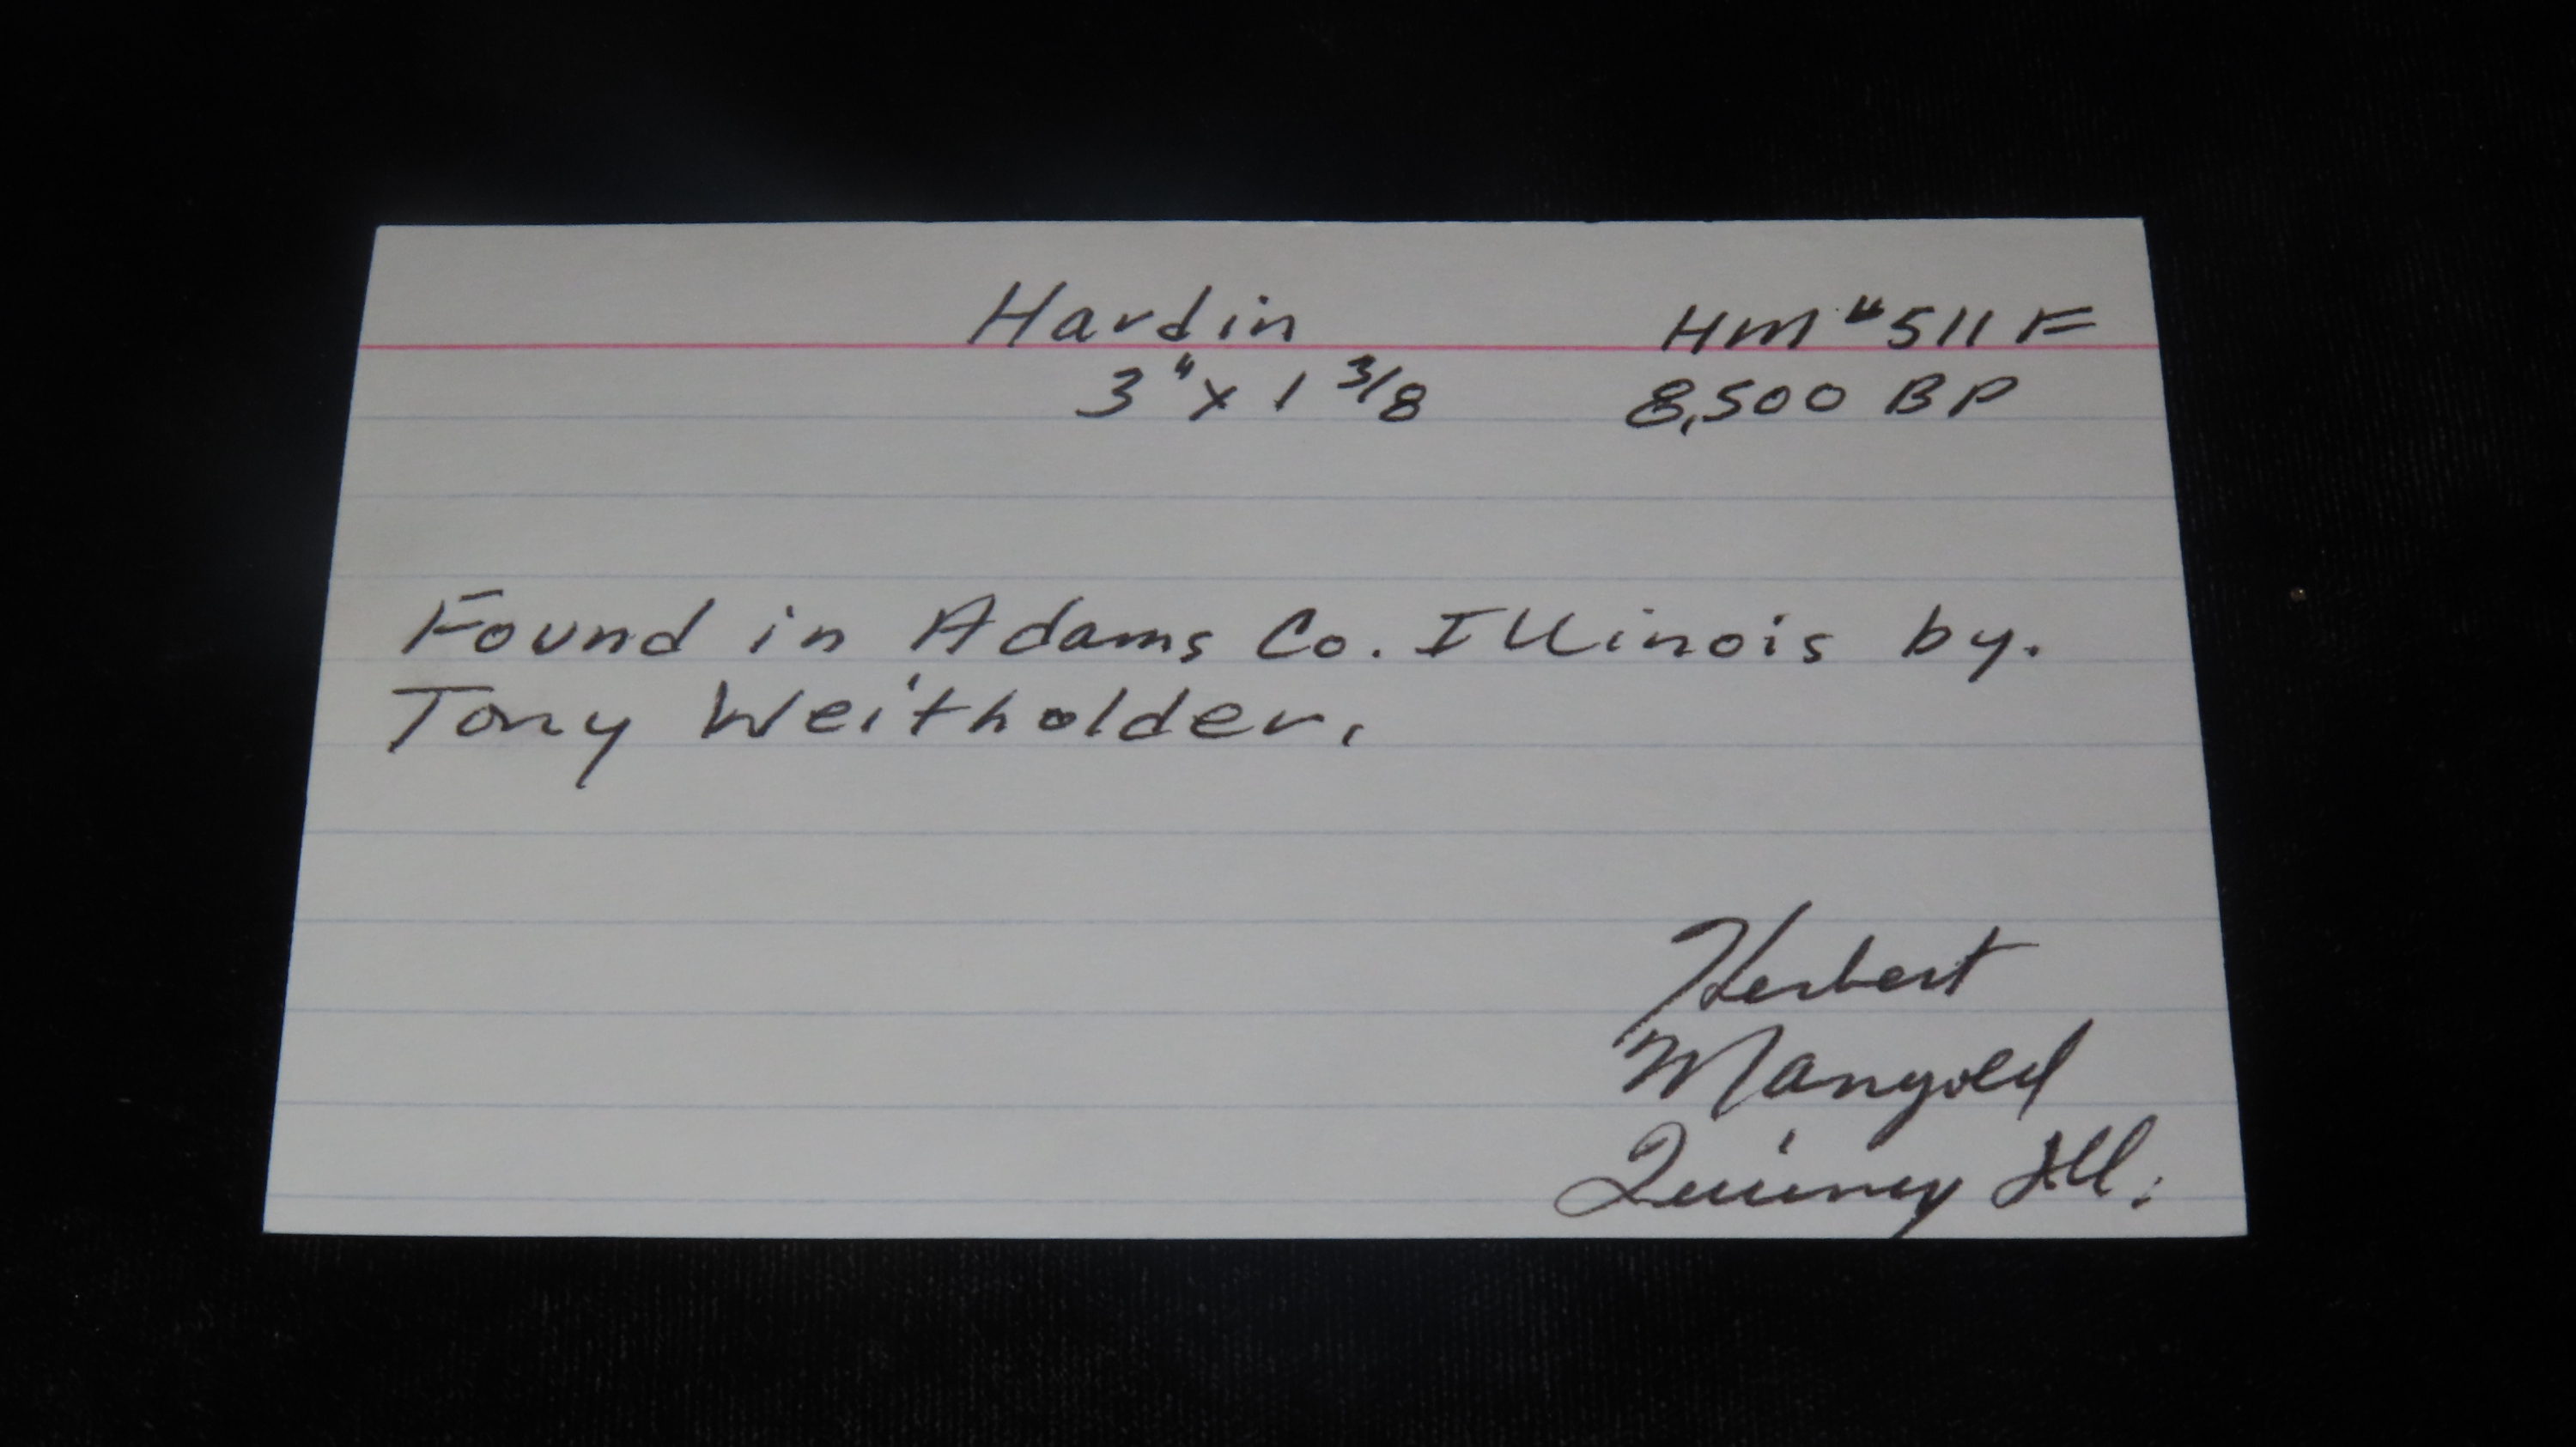 Hardin HM #511 F
3" x 1 3/8 8,500 BP
Found in Adams Co. Illinois by.
Tony Weitholder.
Herbert
Mangold
Quincy Ill.